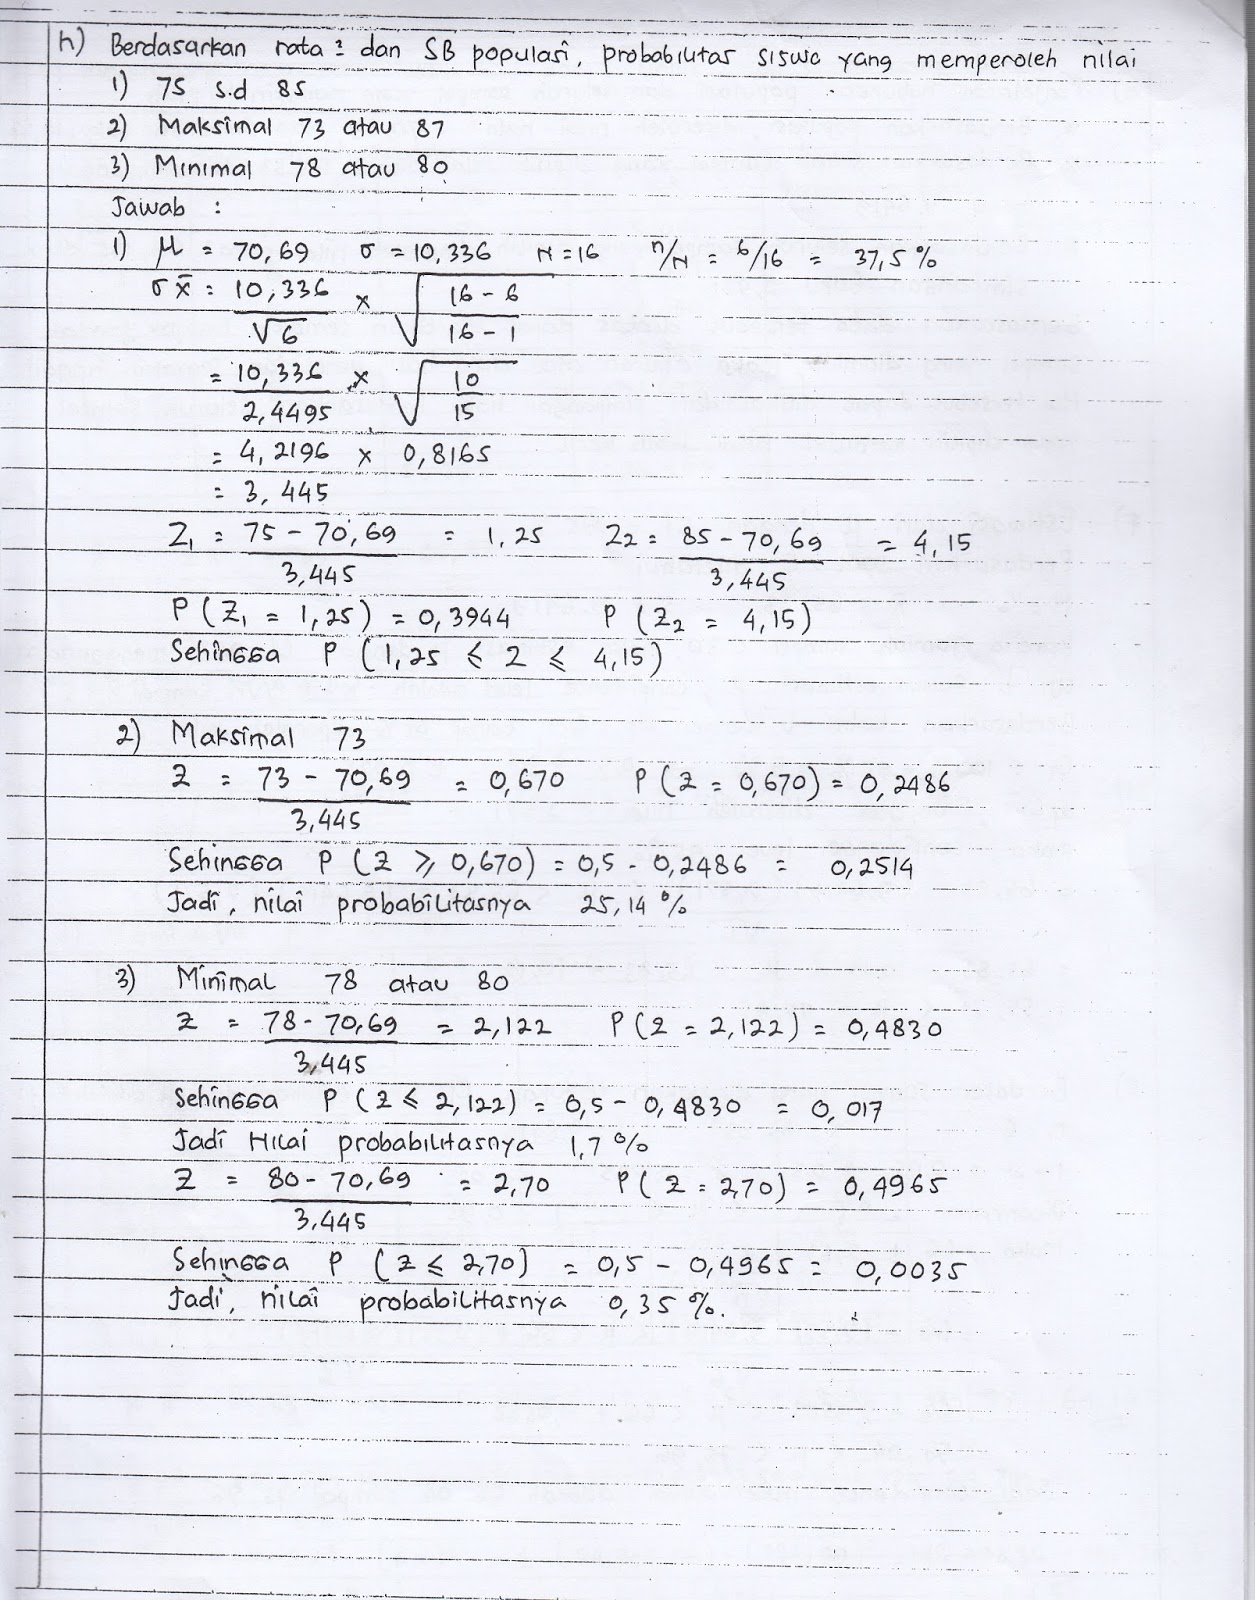 h) Berdasarkan rata² dan SB populasi, probabilitas siswa yang memperoleh nilai
1) 75 s.d 85
2) Maksimal 73 atau 87
3) Minimal 78 atau 80
Jawab :
1) μ = 70,69 σ = 10,336 N = 16 n/N = 6/16 = 37,5 %
σx̄ = 10,336/√6 × √(16-6/16-1)
= 10,336/2,4495 × √(10/15)
= 4,2196 × 0,8165
= 3,445
Z₁ = 75 - 70,69/3,445 = 1,25 Z2 = 85 - 70,69/3,445 = 4,15
P (Z₁ = 1,25) = 0,3944 P (Z₂ = 4,15)
Sehingga P (1,25 ≤ Z ≤ 4,15)
2) Maksimal 73
Z = 73 - 70,69/3,445 = 0,670 P (Z = 0,670) = 0,2486
Sehingga P (Z ≥ 0,670) = 0,5 - 0,2486 = 0,2514
Jadi, nilai probabilitasnya 25,14 %
3) Minimal 78 atau 80
Z = 78 - 70,69/3,445 = 2,122 P (Z = 2,122) = 0,4830
Sehingga P (Z ≤ 2,122) = 0,5 - 0,4830 = 0,017
Jadi Nilai probabilitasnya 1,7 %
Z = 80 - 70,69/3,445 = 2,70 P (Z = 2,70) = 0,4965
Sehingga P (Z ≤ 2,70) = 0,5 - 0,4965 = 0,0035
Jadi, nilai probabilitasnya 0,35 %.